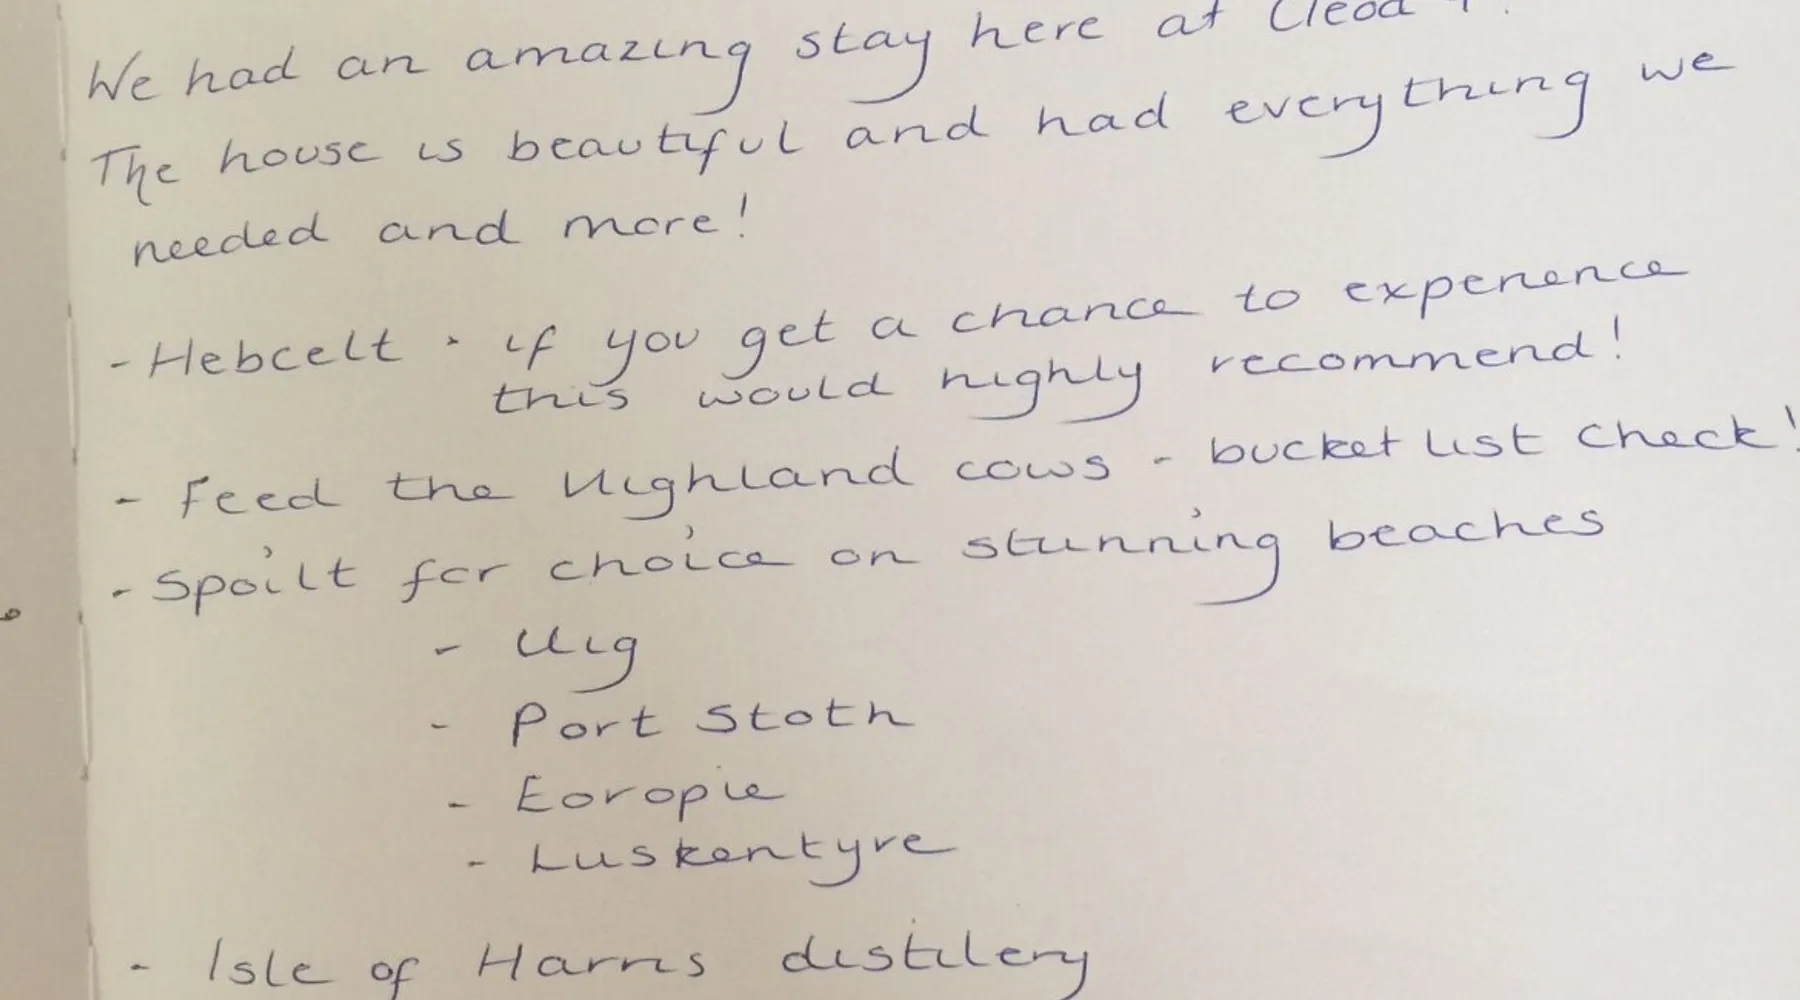 We had an amazing stay here at
The house is beautiful and had everything we
needed and more!
- Hebcelt - if you get a chance to experience
this would highly recommend!
- Feed the Highland cows - bucket list check!
- Spoilt for choice on stunning beaches
- Uig
- Port Stoth
- Eoropie
- Luskentyre
- Isle of Harris distilery